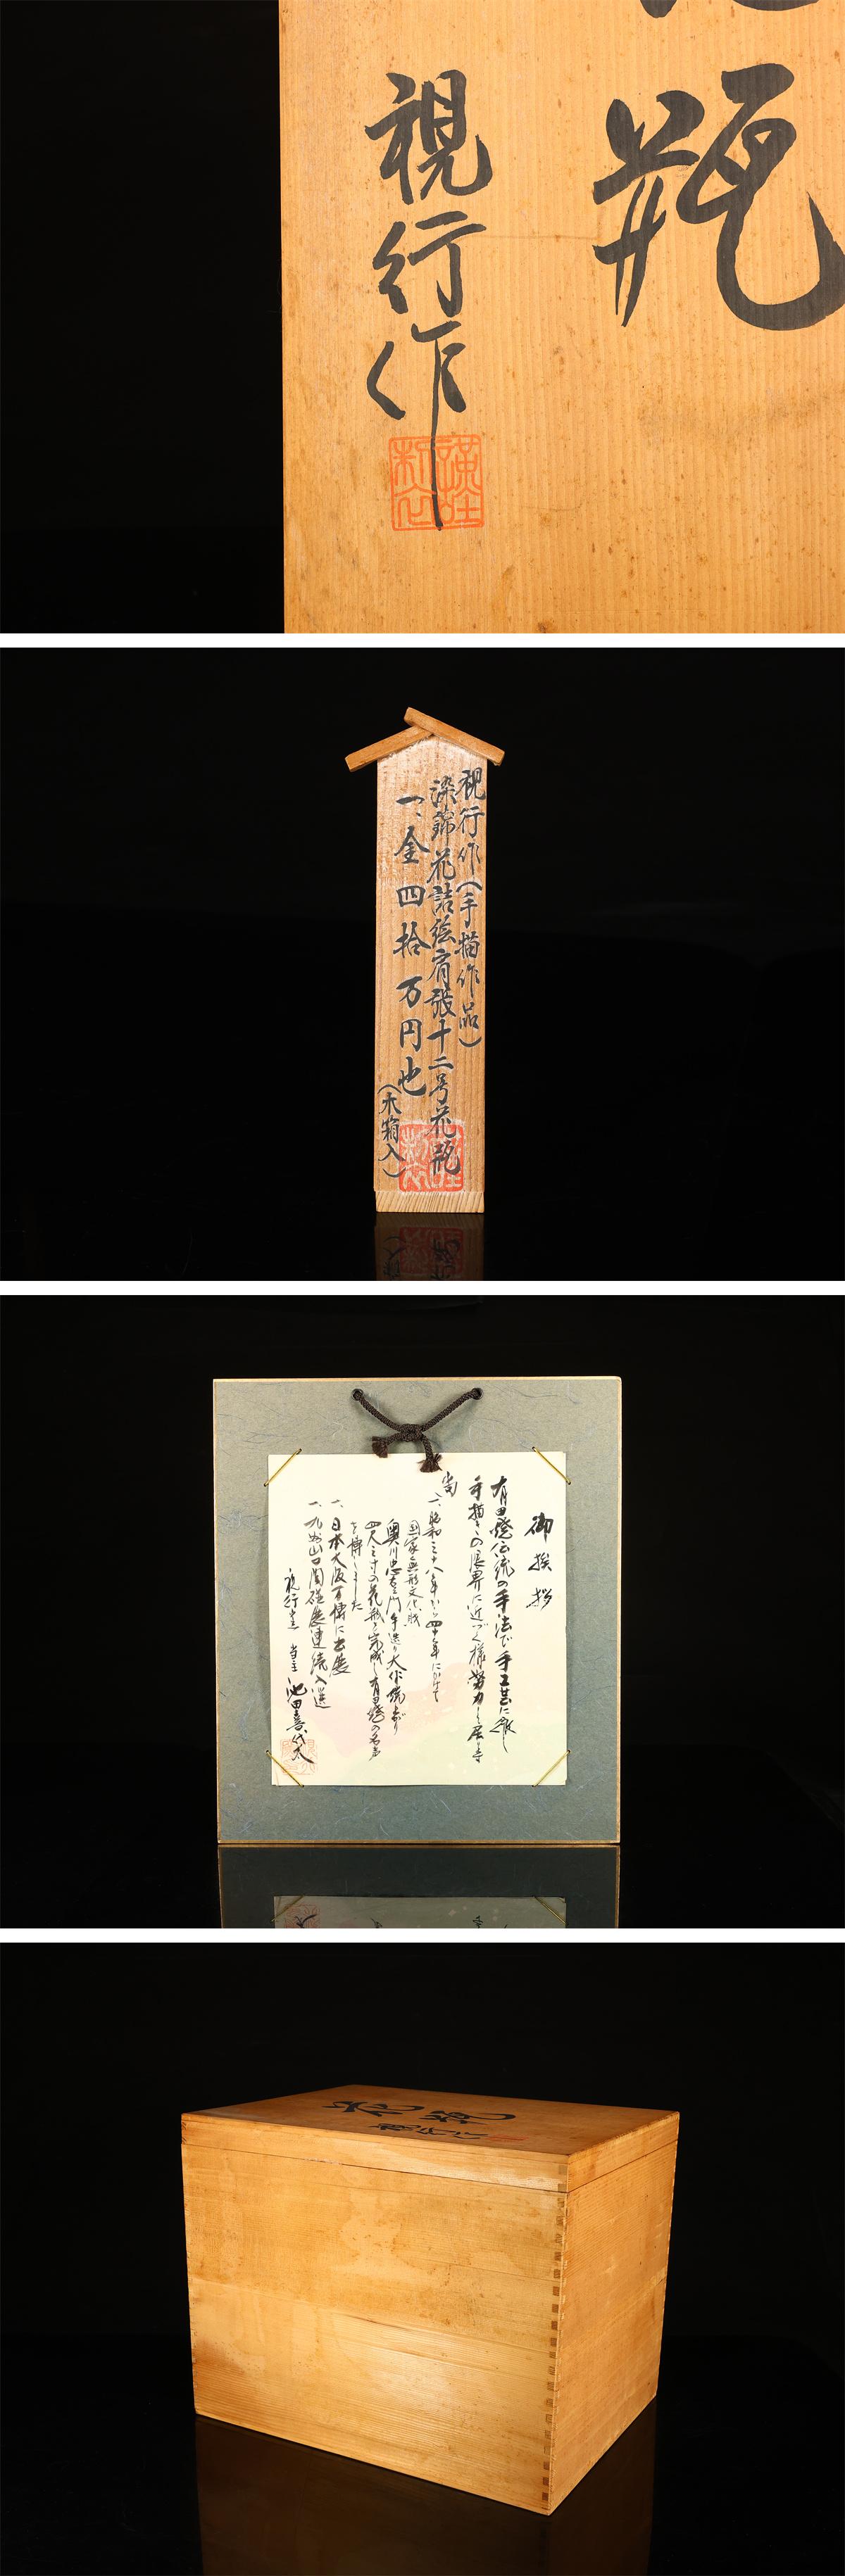 瓶
視行作
視行作(手描作品)
染錦花詰絵肩張十二号花瓶
一、金四拾万円也
(木箱入)
御挨拶
有田焼伝統の手法で手工芸に徹し
手描きの限界に近づく様努力し居り
尚
一、昭和三十八年から四十年にかけて
国家無形文化財
奥川忠右エ門手造り大作焼
四尺三寸の花瓶を完成し有田焼の名声
を博しました
一、日本大阪万博に出展
一、九州山口陶磁展連続入選
視行窯 当主 池田喜代太
花瓶
視行作